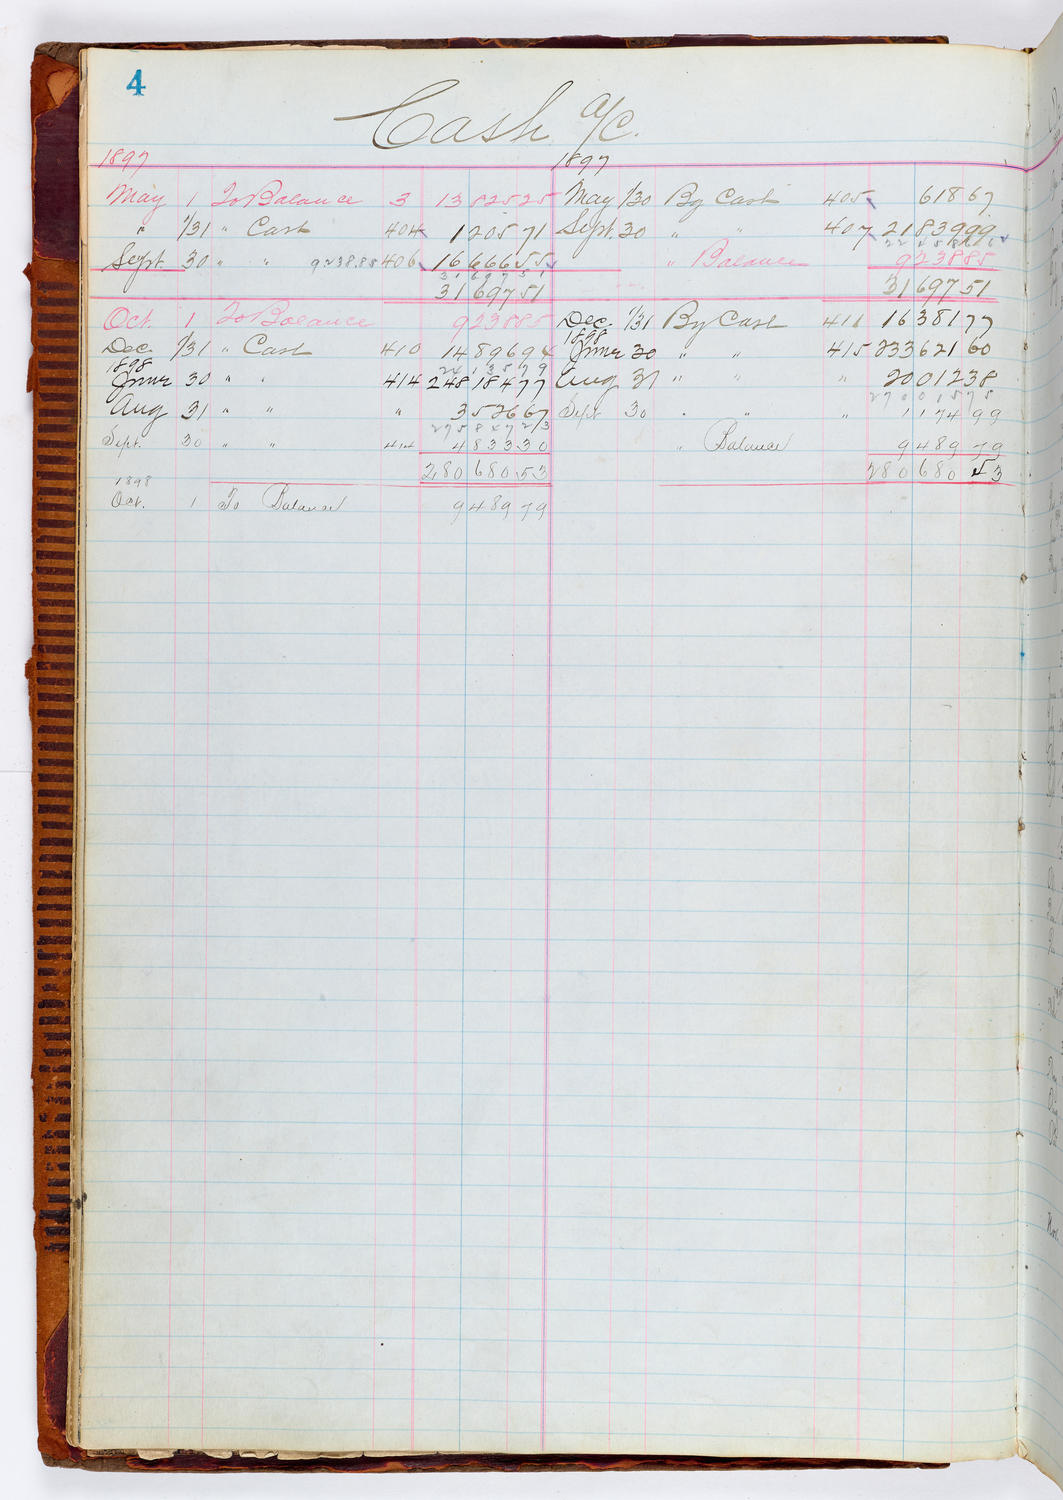 4
Cash a/c.
1897 1897
May 1 To Balance 3 13 825 25 May 1/30 By Cash 405 618 67
" 1/31 " Cash 404 1 205 71 Sept. 30 " " 407 21 839 99
22 458 66
Sept. 30 " " 9238.85 406 16 666 55 " Balance 9 238 85
31 697 51
31 697 51 31 697 51
Oct. 1 To Balance 9 238 85 Dec. 1/31 By Cash 411 16 381 77
Dec. 1/31 " Cash 410 14 896 94 1898 June 30 " " 415 233 621 60
24 135 79
1898 June 30 " " 414 248 184 77 Aug 31 " " " 20 012 38
270 015 75
Aug 31 " " " 3 526 67 Sept 30 " " " 1 174 99
275 847 23
Sept. 30 " " 414 4 833 30 " Balance 9 489 79
280 680 53 280 680 53
1898
Oct. 1 To Balance 9 489 79